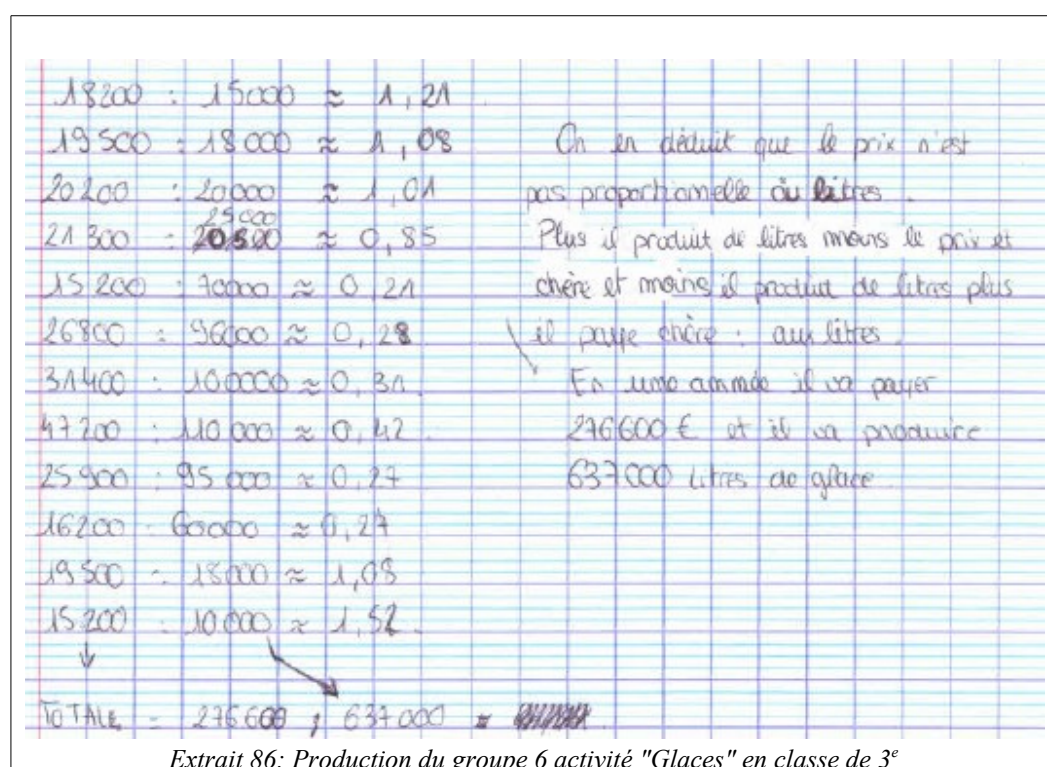 18200 : 15000 ≈ 1,21
19500 : 18000 ≈ 1,08
20200 : 20000 ≈ 1,01
25000
21300 : 20500 ≈ 0,85
15200 : 70000 ≈ 0,21
26800 : 96000 ≈ 0,28
31400 : 100000 ≈ 0,31
47200 : 110 000 ≈ 0,42
25900 : 95 000 ≈ 0,27
16200 : 60000 ≈ 0,27
19500 : 18000 ≈ 1,08
15200 : 10000 ≈ 1,52
TOTALE = 276600 ; 637000 =
On en déduit que le prix n'est
pas proportionnelle au litres.
Plus il produit de litres moins le prix et
chère et moins il produit de litres plus
il paye chère : aux litres.
En une année il va payer
276600 € et il va produire
637000 litres de glace
Extrait 86: Production du groupe 6 activité "Glaces" en classe de 3e